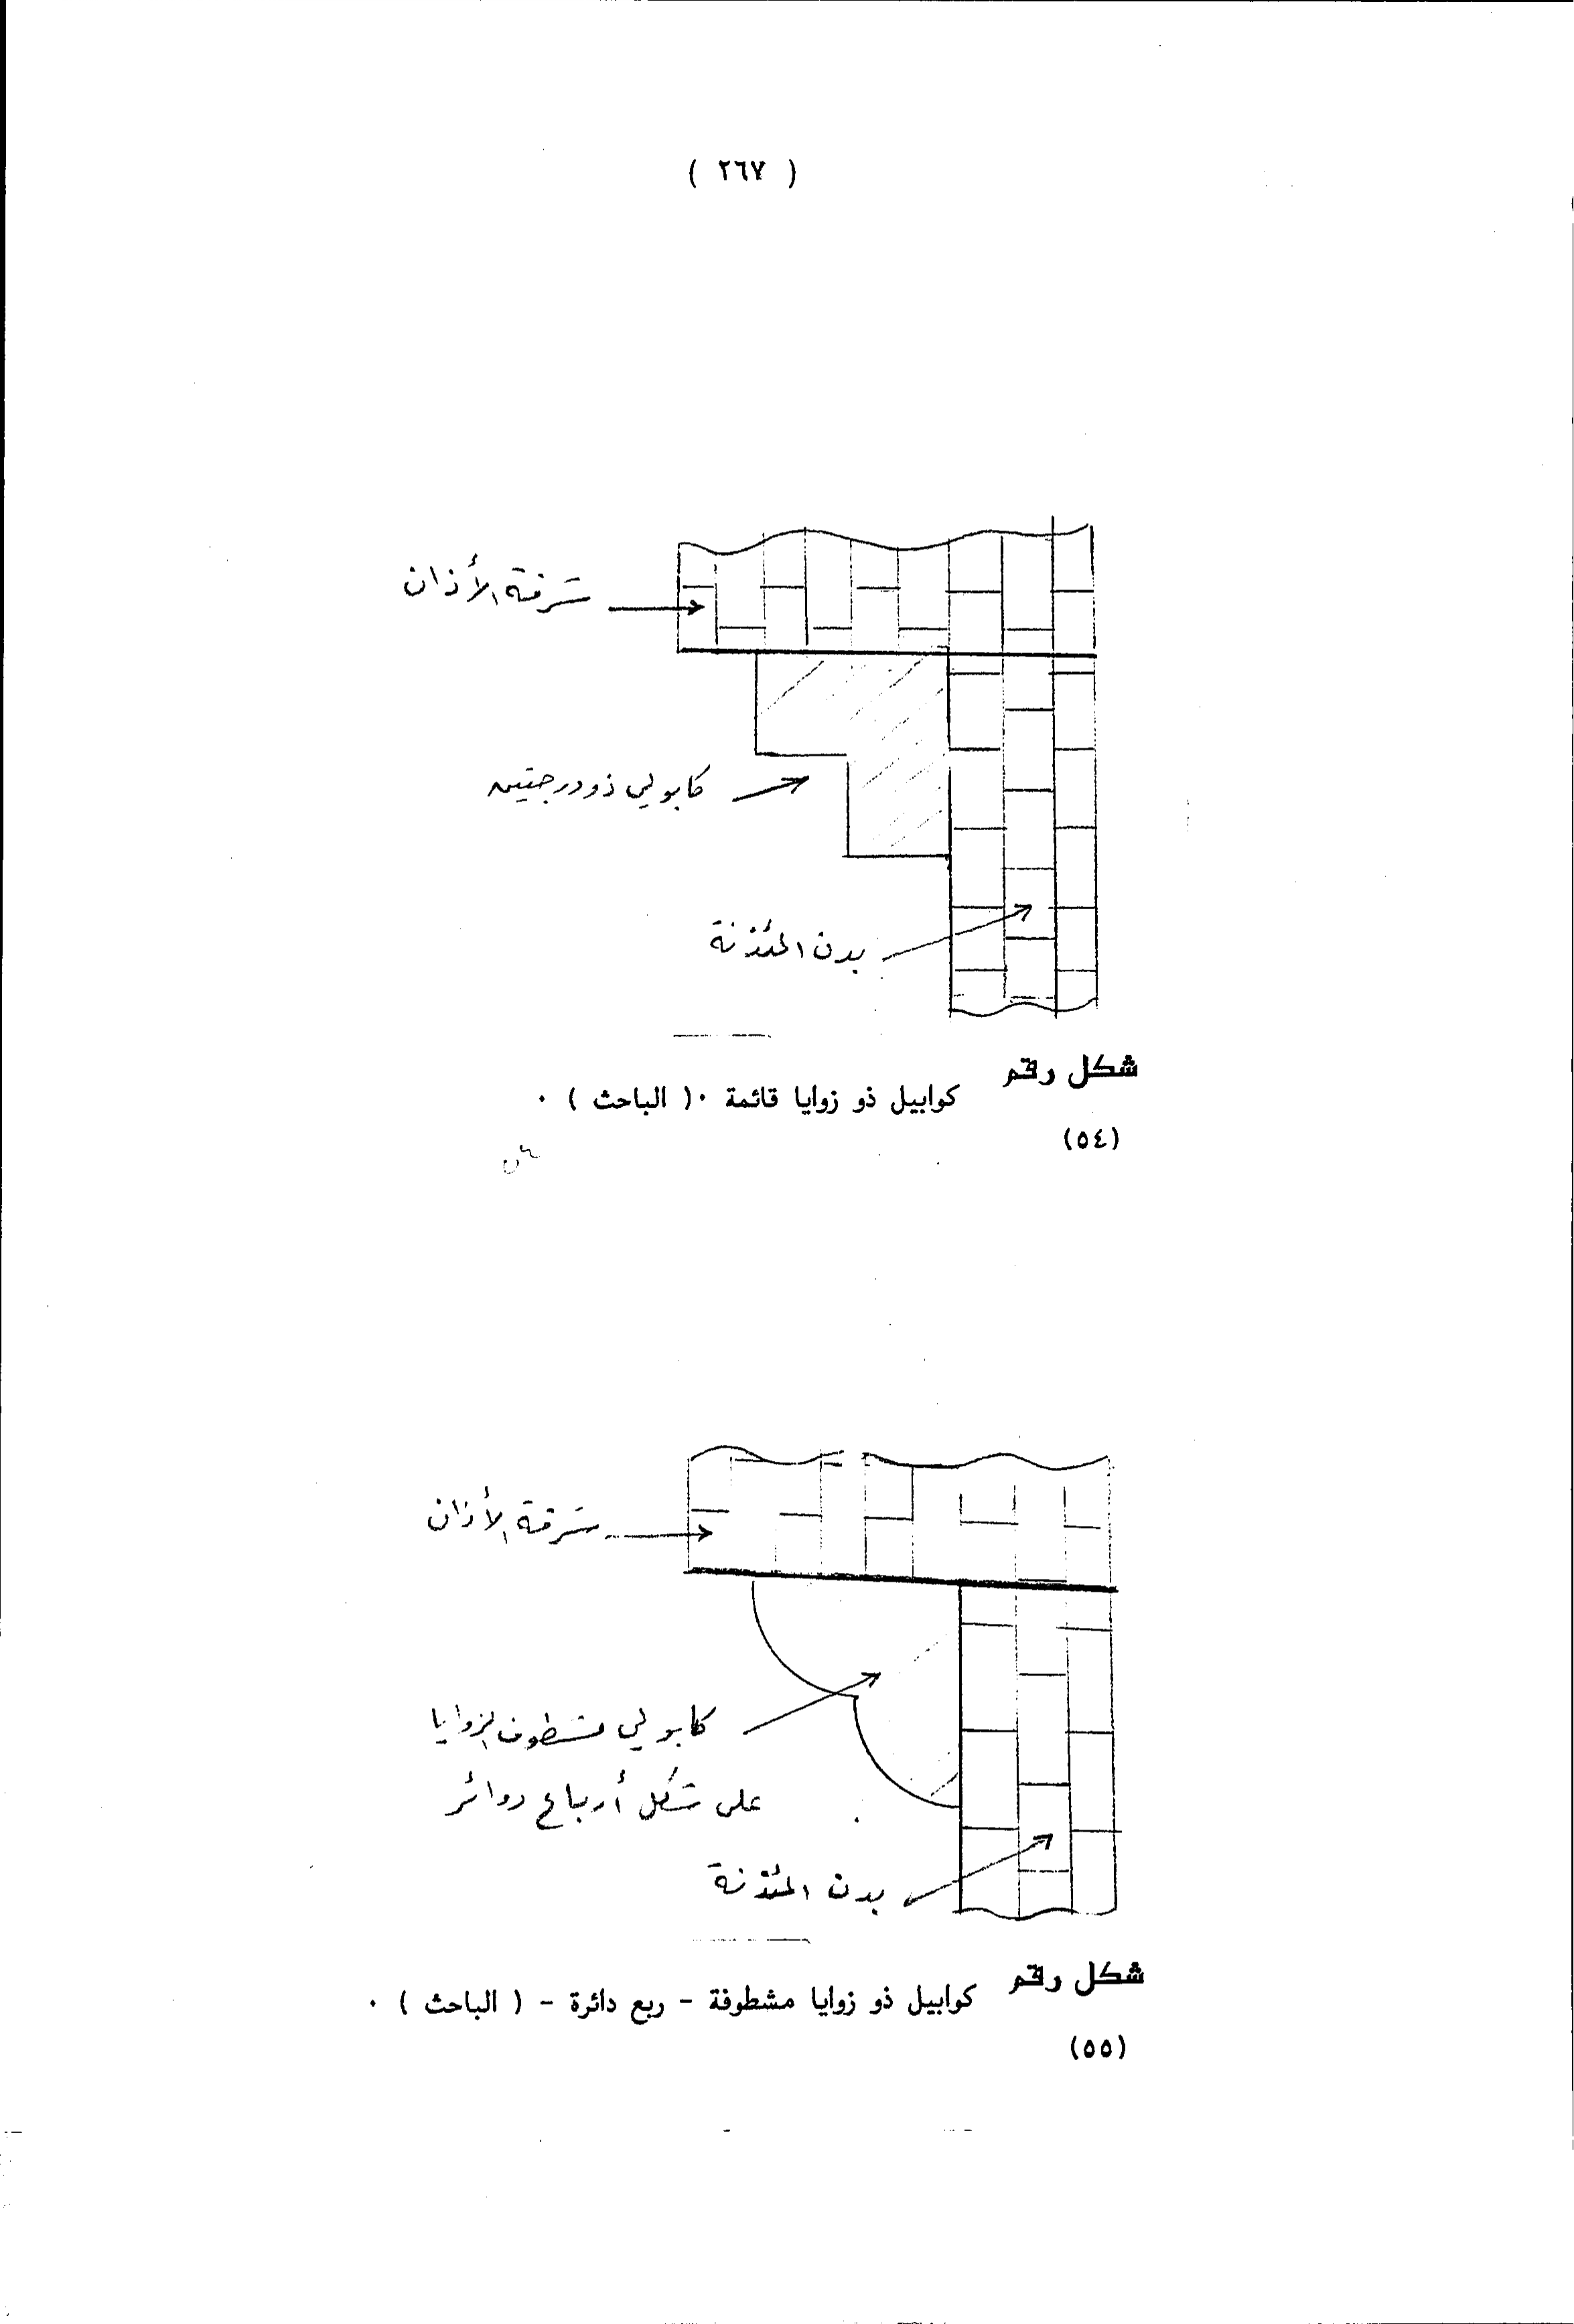 ( ٢٦٧ )
شرفة الأذان
كابولي ذو درجتين
بدن المئذنة
شكل رقم
كوابيل ذو زوايا قائمة ٠( الباحث ) ٠
(٥٤)
شرفة الأذان
كابولي مشطوف الزوايا
على شكل أرباع دوائر
بدن المئذنة
شكل رقم
كوابيل ذو زوايا مشطوفة - ربع دائرة - ( الباحث ) ٠
(٥٥)